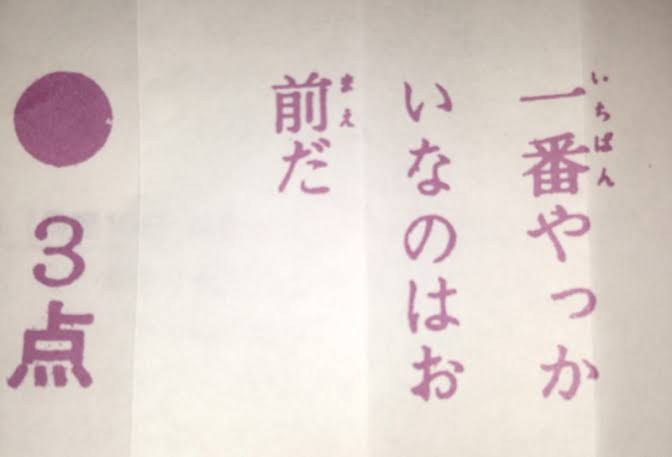 一番やっか
いなのはお
前だ
いちばん
まえ
●3点